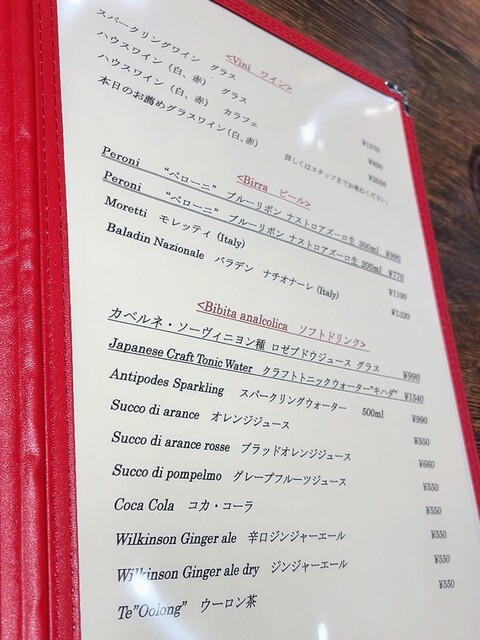 <Vini　ワイン>
スパークリングワイン　グラス　¥1370
ハウスワイン（白、赤）　グラス
ハウスワイン（白、赤）　カラフェ
本日のお薦めグラスワイン(白、赤)
詳しくはスタッフまでお尋ねください。
<Birra　ビール>
Peroni　“ペローニ”　ブルーリボン ナストロアズーロ生 300ml　¥990
Peroni　“ペローニ”　ブルーリボン ナストロアズーロ生 200ml　¥770
Moretti　モレッティ (Italy)　¥1100
Baladin Nazionale　バラデン　ナチオナーレ (Italy)　¥1320
<Bibita analcolica　ソフトドリンク>
カベルネ・ソーヴィニヨン種 ロゼブドウジュース グラス　¥990
Japanese Craft Tonic Water　クラフトトニックウォーター“キハダ”　¥1540
Antipodes Sparkling　スパークリングウォーター　500ml　¥990
Succo di arance　オレンジジュース　¥550
Succo di arance rosse　ブラッドオレンジジュース　¥660
Succo di pompelmo　グレープフルーツジュース　¥550
Coca Cola　コカ・コーラ　¥550
Wilkinson Ginger ale　辛口ジンジャーエール　¥550
Wilkinson Ginger ale dry　ジンジャーエール　¥550
Te”Oolong”　ウーロン茶